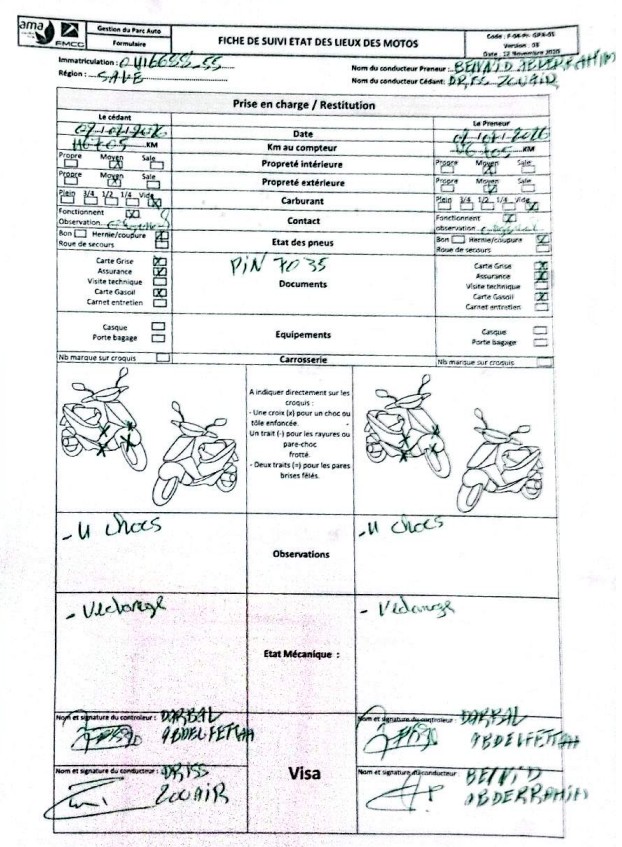 ama
FMCC
Gestion du Parc Auto
Formulaire
FICHE DE SUIVI ETAT DES LIEUX DES MOTOS
Code : F-04-Pr- GPA-01
Version : 03
Date : 12 Novembre 2020
Immatriculation :
Région : SALE
Nom du conducteur Preneur : BENVID ABDERRAHIM
Nom du conducteur Cédant: DRISS ZOUAIR
Prise en charge / Restitution
Le cédant
Le Preneur
Date
KM Km au compteur KM
Propre Moyen Sale Propreté intérieure Propre Moyen Sale
Propre Moyen Sale Propreté extérieure Propre Moyen Sale
Plein 3/4 1/2 1/4 Vide Carburant Plein 3/4 1/2 1/4 Vide
Fonctionnent Contact Fonctionnent
Observation observation
Bon Hernie/coupure Etat des pneus Bon Hernie/coupure
Roue de secours Roue de secours
PIN 7035
Carte Grise Carte Grise
Assurance Assurance
Visite technique Documents Visite technique
Carte Gasoil Carte Gasoil
Carnet entretien Carnet entretien
Casque Casque
Porte bagage Equipements Porte bagage
Nb marque sur croquis Carrosserie Nb marque sur croquis
A indiquer directement sur les
croquis :
- Une croix (x) pour un choc ou
tôle enfoncée. -
Un trait (-) pour les rayures ou
pare-choc
frotté.
- Deux traits (=) pour les pares
brises fêlés.
- 4 chocs - 4 chocs
Observations
- Vidange - Vidange
Etat Mécanique :
Nom et signature du controleur : DARBAL Nom et signature du controleur : DARBAL
ABDELFETTAH ABDELFETTAH
Nom et signature du conducteur : DRISS Visa Nom et signature du conducteur : BENVID
ZOUAIR ABDERRAHIM